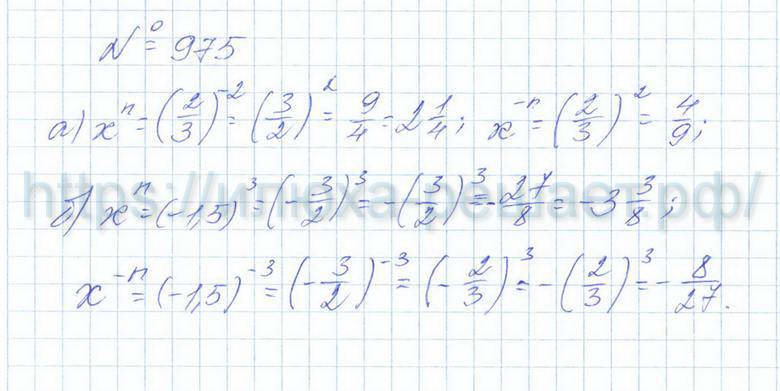 № 975
а) xⁿ = (2/3)⁻² = (3/2)² = 9/4 = 2 1/4; x⁻ⁿ = (2/3)² = 4/9;
https://илюха-решает.рф/
б) xⁿ = (-1,5)³ = (-3/2)³ = -(3/2)³ = -27/8 = -3 3/8;
x⁻ⁿ = (-1,5)⁻³ = (-3/2)⁻³ = (-2/3)³ = -(2/3)³ = -8/27.